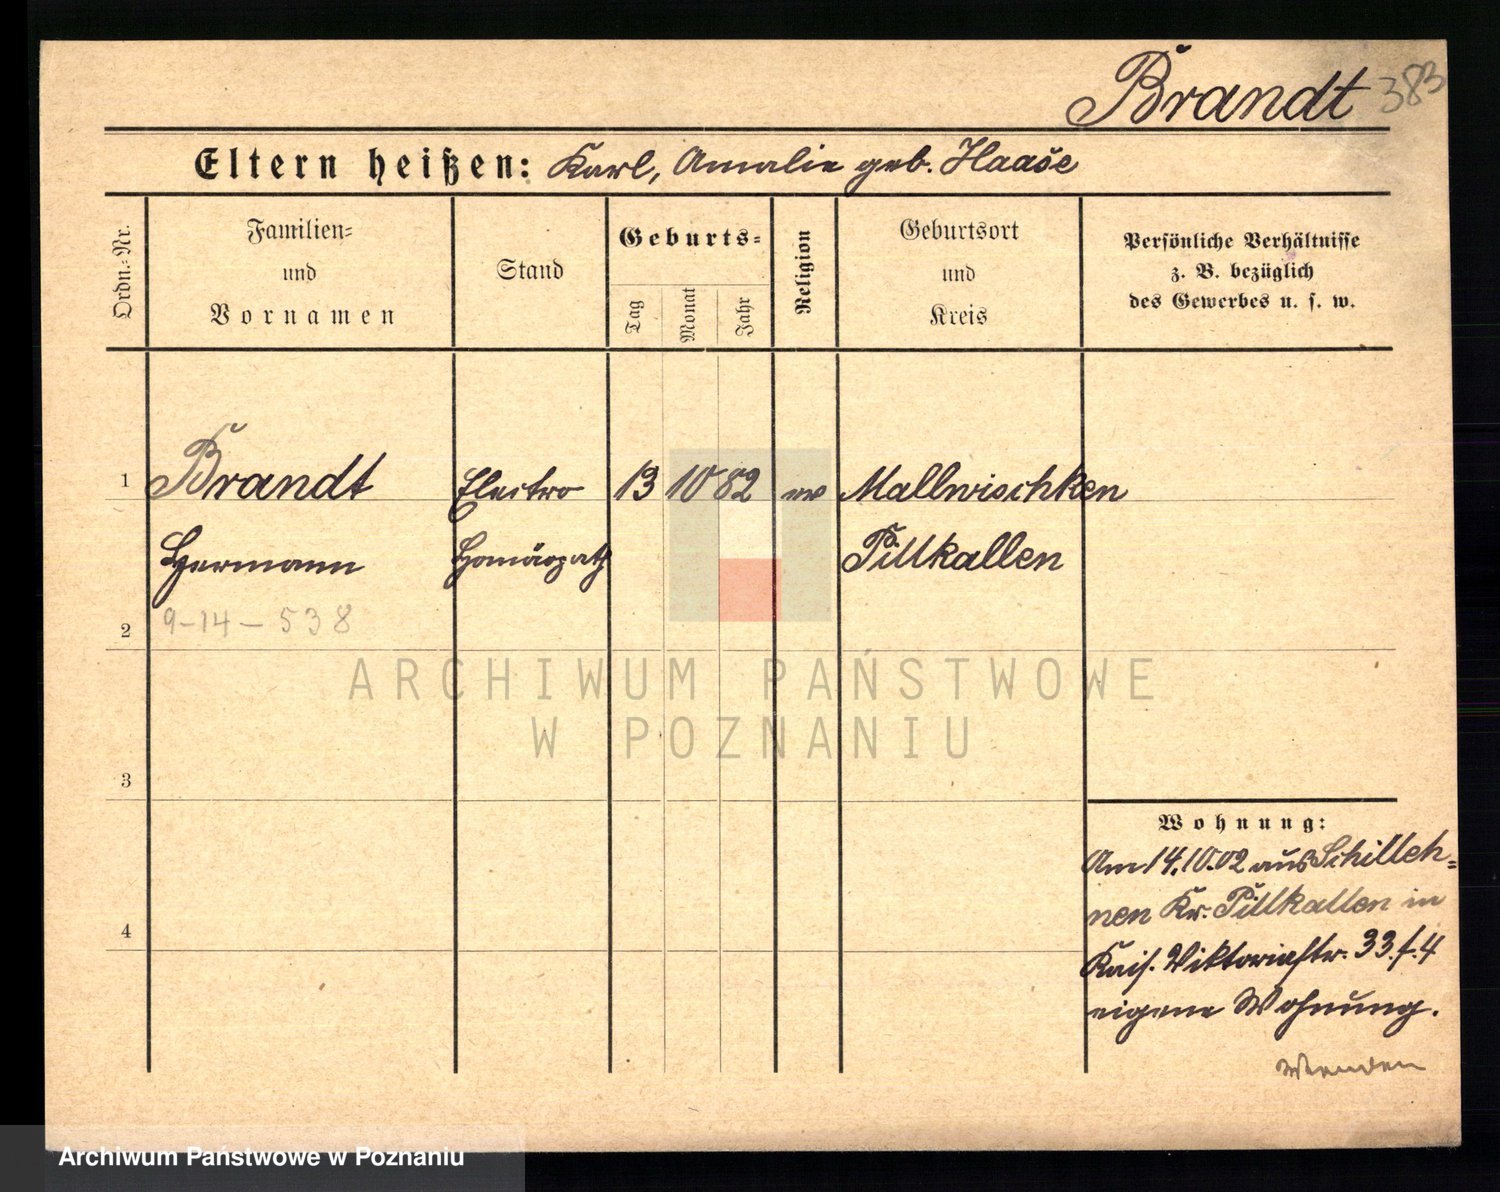 Brandt 383
Eltern heißen: Karl, Amalie geb. Haase
Ordn.-Nr.
Familien-
und
Vornamen
Stand
Geburts-
Tag
Monat
Jahr
Religion
Geburtsort
und
Kreis
Persönliche Verhältnisse
z. B. bezüglich
des Gewerbes u. s. w.
1 Brandt Electro 13 10 82 ev Mallwischken
Hermann Homäopath Pillkallen
9-14-538
2
ARCHIWUM PAŃSTWOWE
W POZNANIU
3
4
Wohnung:
Am 14.10.02 aus Schilleh-
nen Kr. Pillkallen in
Kais. Viktoriastr. 33.f.4
eigene Wohnung.
Wenden
Archiwum Państwowe w Poznaniu